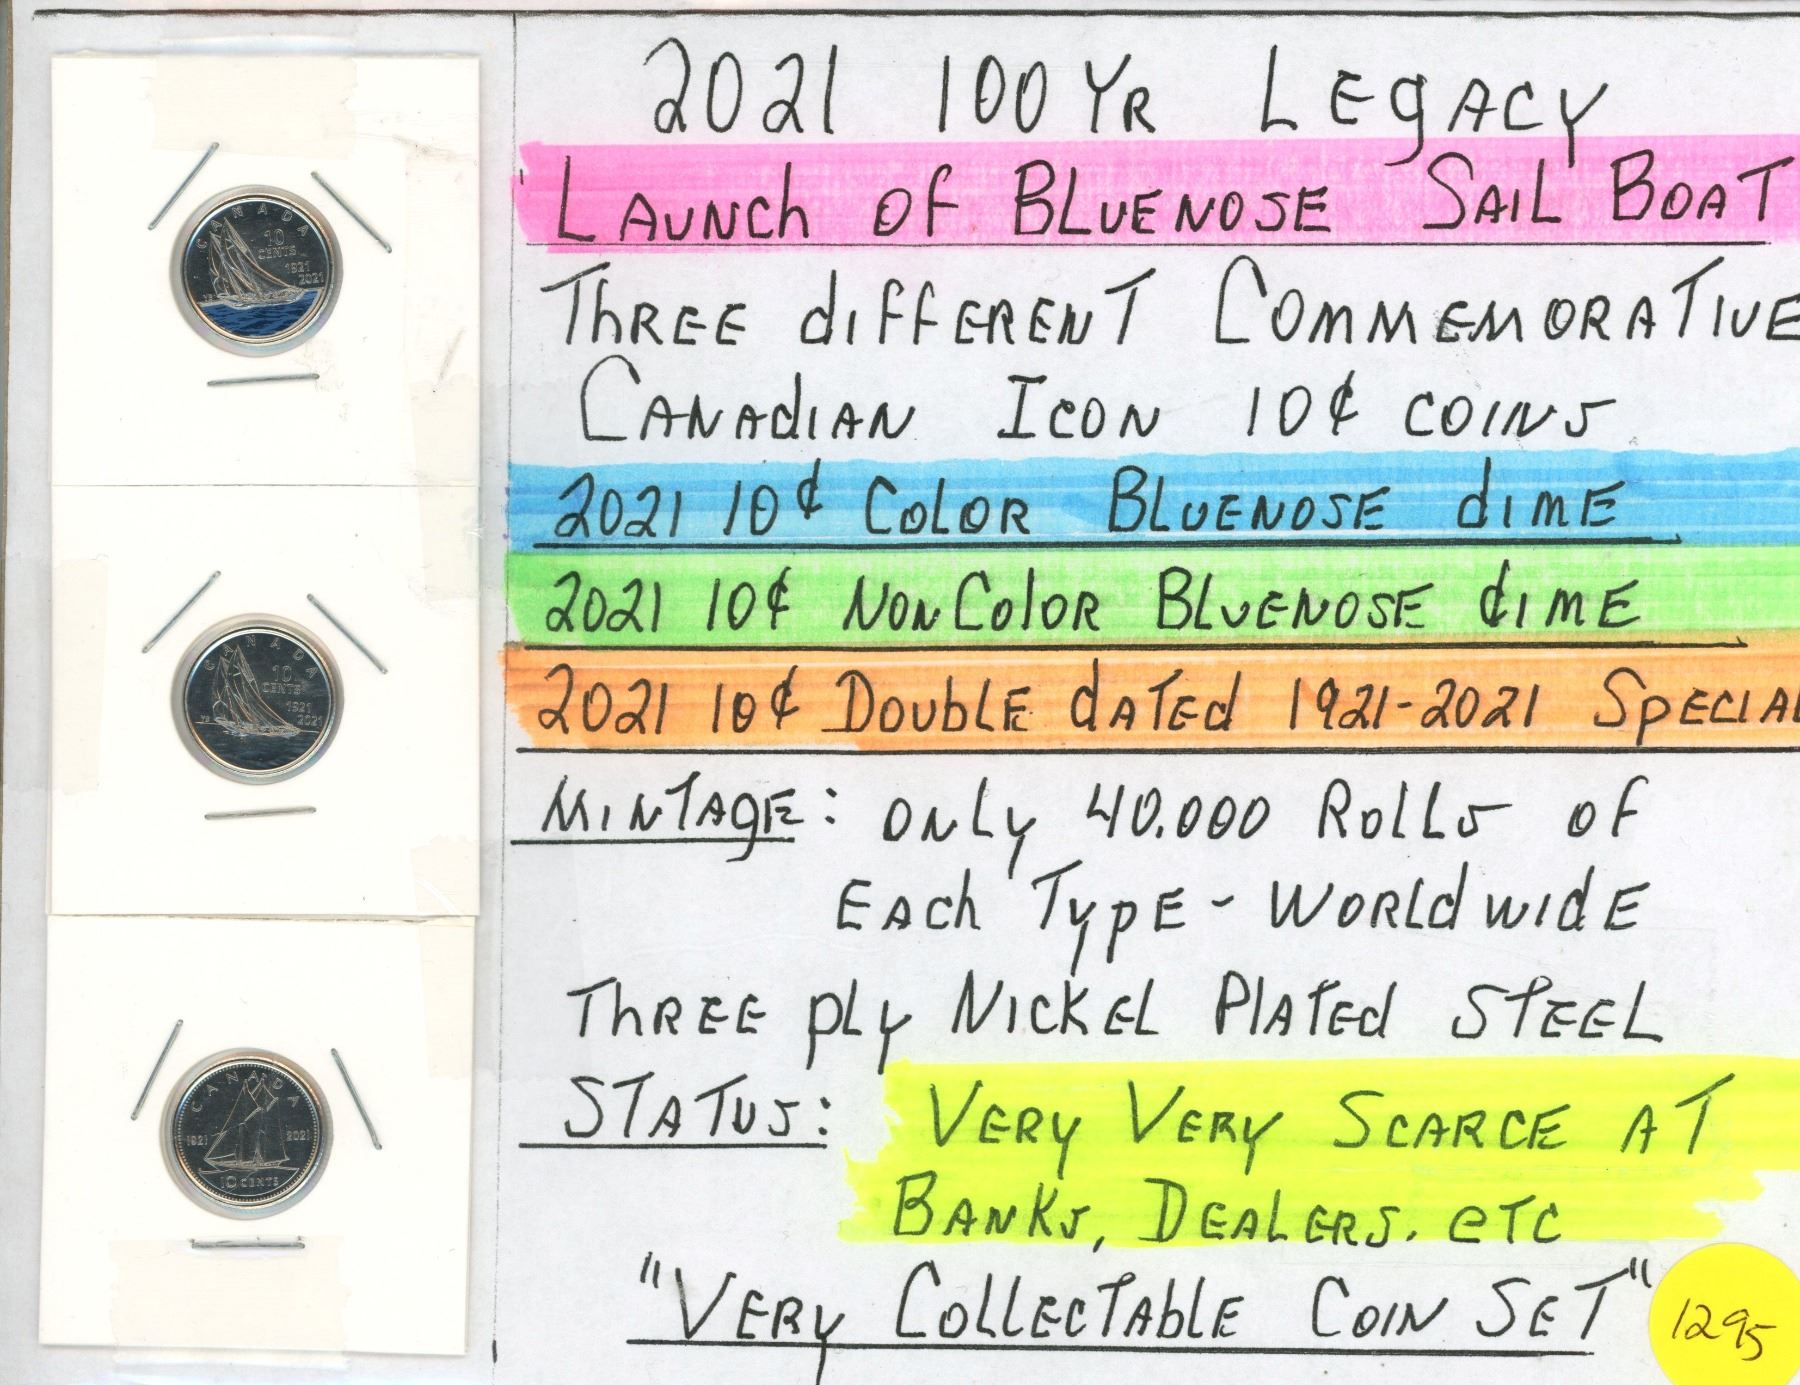 2021 100 YR LEGACY
'LAUNCH OF BLUENOSE SAIL BOAT'
THREE dIFFERENT COMMEMORATIVE
CANAdIAN ICON 10¢ COINS
2021 10¢ COLOR BLUENOSE dIME
2021 10¢ NONCOlOR BLUENOSE dIME
2021 10¢ DOUbLE dATEd 1921-2021 SPECIAL
MINTAgE: ONLY 40.000 ROLLS OF
EACh TYpE - WORLdWIdE
ThREE pLy NICKEL PLATEd STEEL
STATUS: VERY VERY SCARCE AT
BANKS, DEALERS. eTC
"VERY COLLECTAbLE COIN SET"
1295
CANADA
10
CENTS
1921
2021
CANADA
10
CENTS
1921
2021
CANADA
1921 2021
10 CENTS